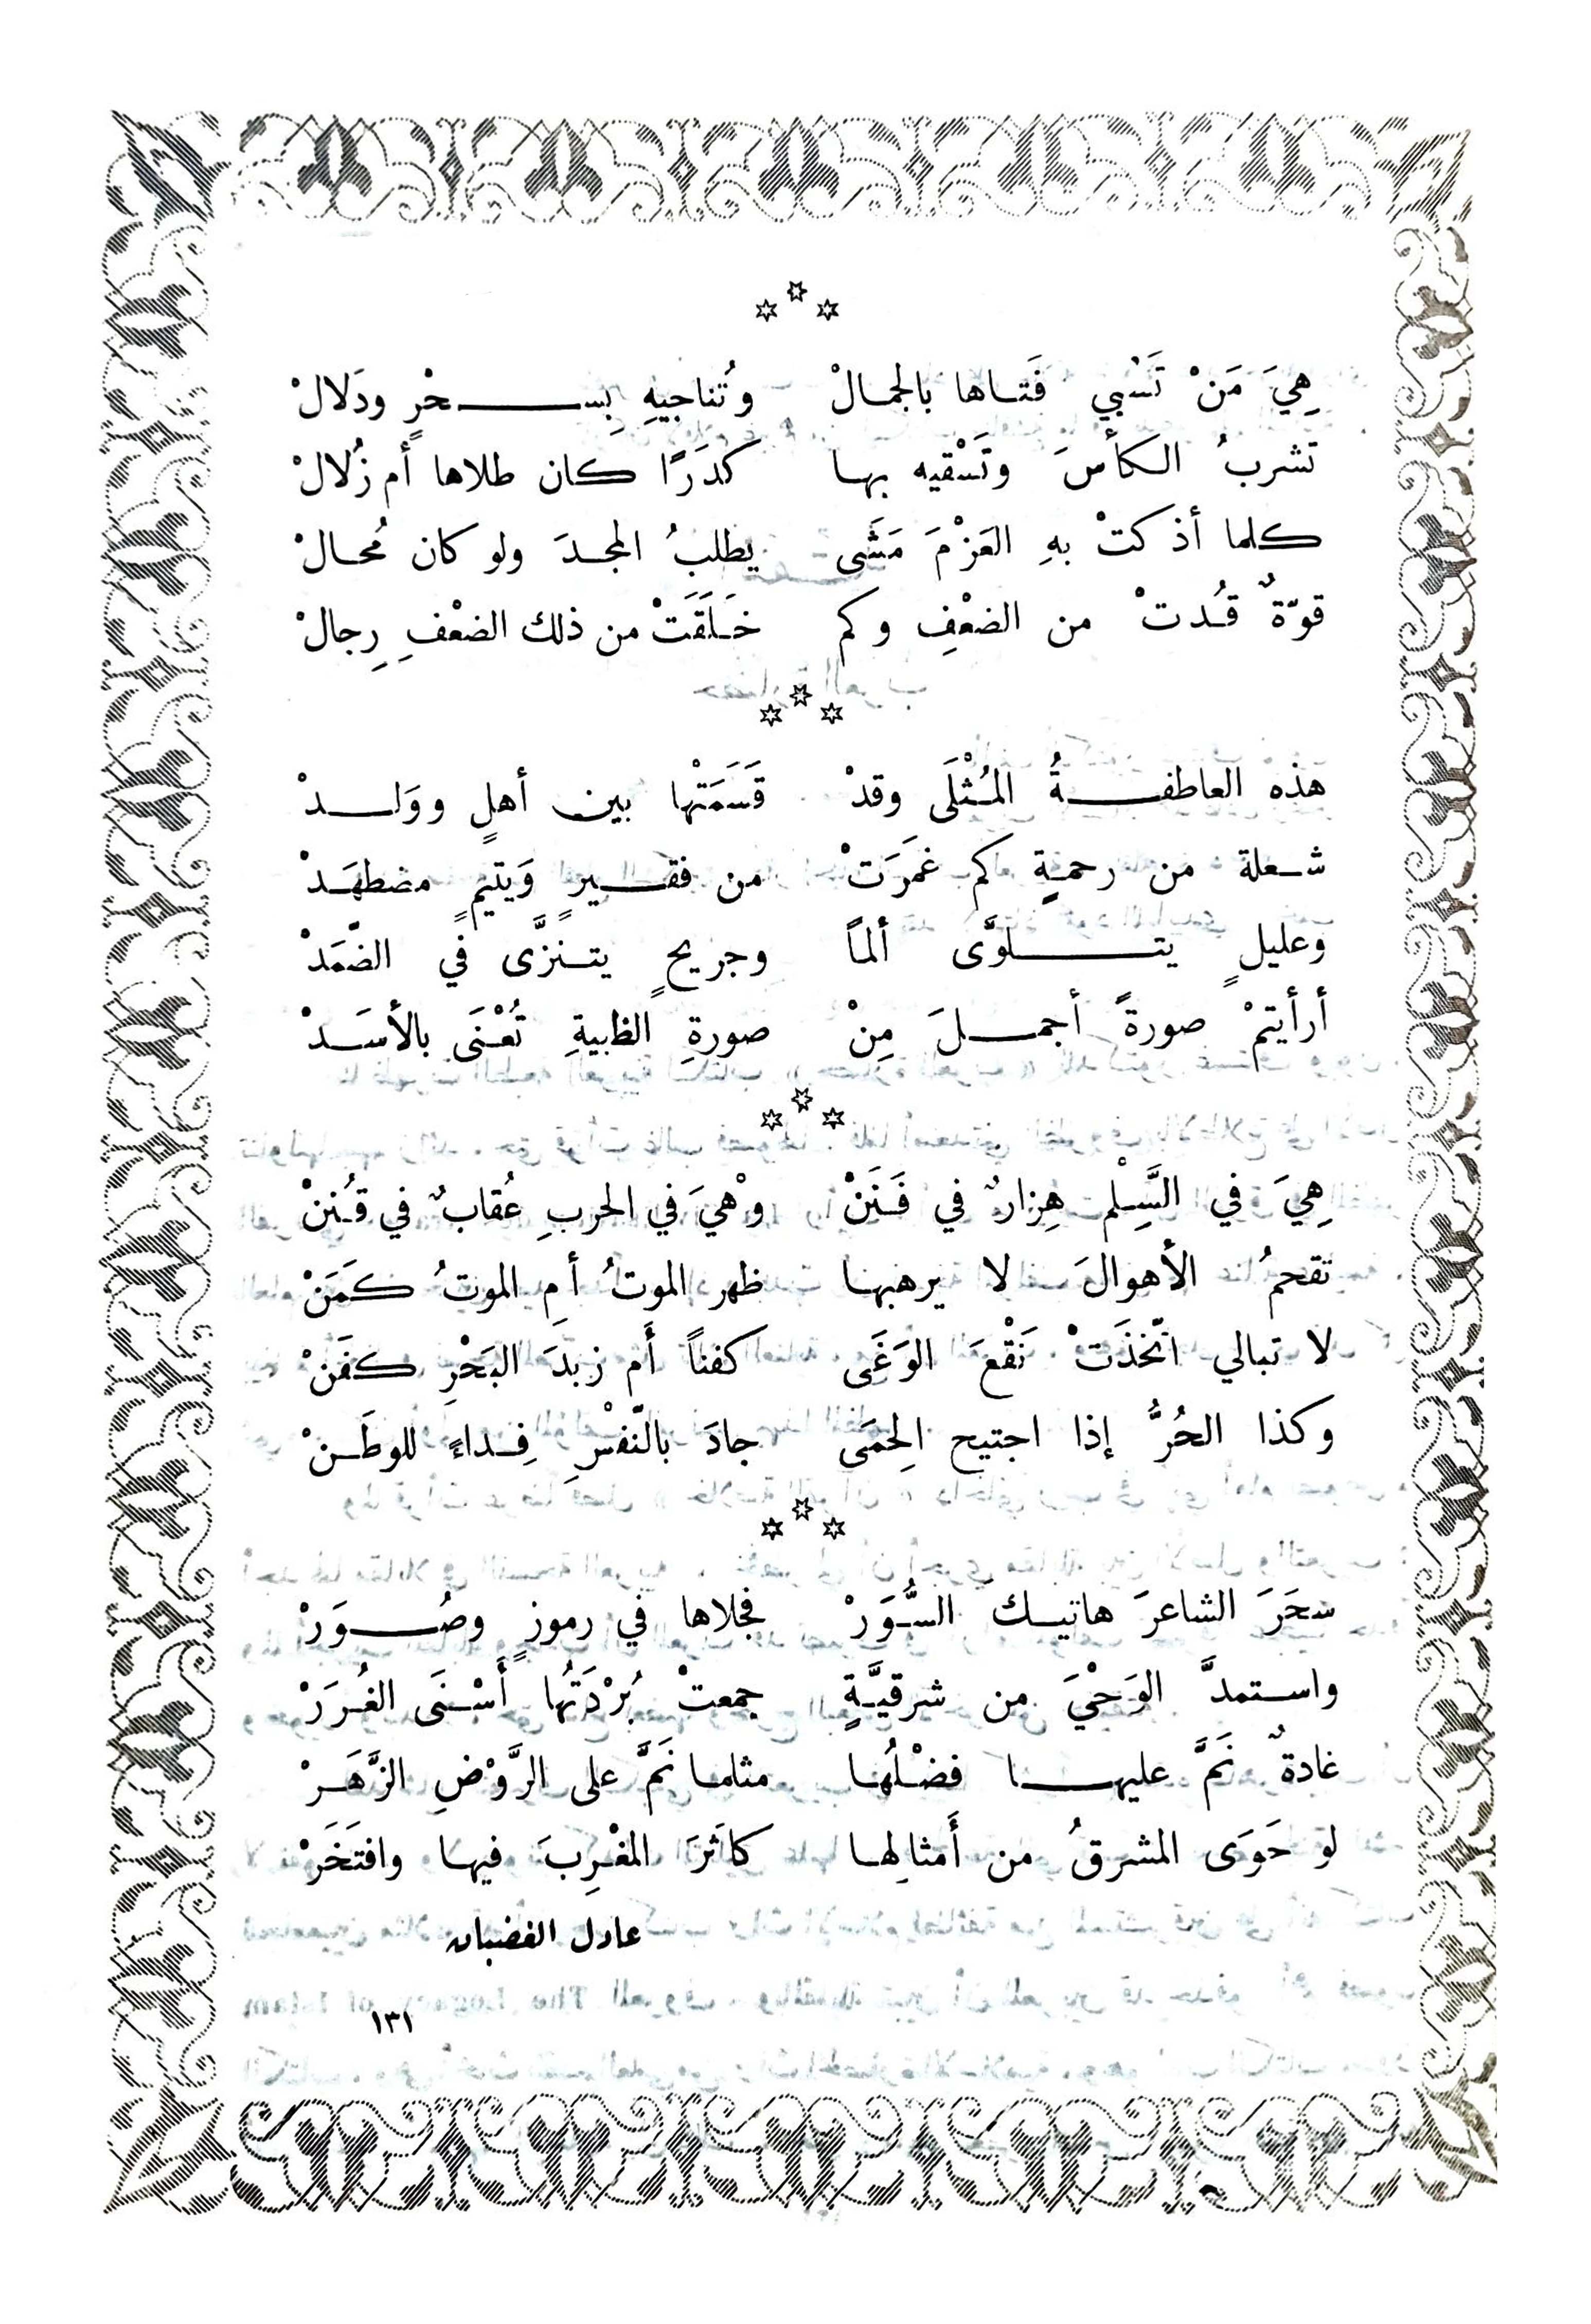 هِيَ مَنْ تَسْبي فَتاها بالجمالْ وتُناجيهِ بِسحْرٍ ودَلالْ
تشربُ الكأسَ وتَسْقيه بها كدَرًا كان طلاها أم زُلالْ
كلما أذكتْ بهِ العَزْمَ مَشَى يطلبُ المجدَ ولو كان مُحالْ
قوّةٌ قُدتْ من الضعْفِ وكم خَلَقَتْ من ذلك الضعْفِ رِجالْ
هذه العاطفةُ المُثْلَى وقدْ قَسَمَتْها بين أهلٍ ووَلدْ
شعلة من رحمةٍ كم غمَرَتْ من فقيرٍ وَيتيمٍ مضطهَدْ
وعليلٍ يتلوَّى ألماً وجريحٍ يتنزَّى في الضّمَدْ
أرأيتمْ صورةً أجملَ مِنْ صورةِ الظبيةِ تُعْنَى بالأسَدْ
هِيَ في السَّلْمِ هِزارٌ في فَنَنْ وهْيَ في الحربِ عُقابٌ في قُننْ
تقحمُ الأهوالَ لا يرهبها ظهر الموتُ أمِ الموتُ كَمَنْ
لا تبالي اتّخذَتْ نَقْعَ الوَغَى كفناً أَم زبدَ البَحْرِ كفَنْ
وكذا الحُرُّ إذا اجتيح الحِمَى جادَ بالنّفْسِ فِداءً للوطَنْ
سحَرَ الشاعرَ هاتيك السُّوَرْ فجلاها في رموزٍ وصُوَرْ
واستمدَّ الوَحْيَ من شرقيَّةٍ جمعتْ بُرْدَتُها أَسْنَى الغُرَرْ
غادةٌ نَمَّ عليها فضْلُها مثلما نَمَّ على الرَّوْضِ الزَّهَرْ
لو حَوَى المشرقُ من أَمثالِها كاثَرَ المغْرِبَ فيها وافتَخَرْ
عادل الغضبان
١٣١